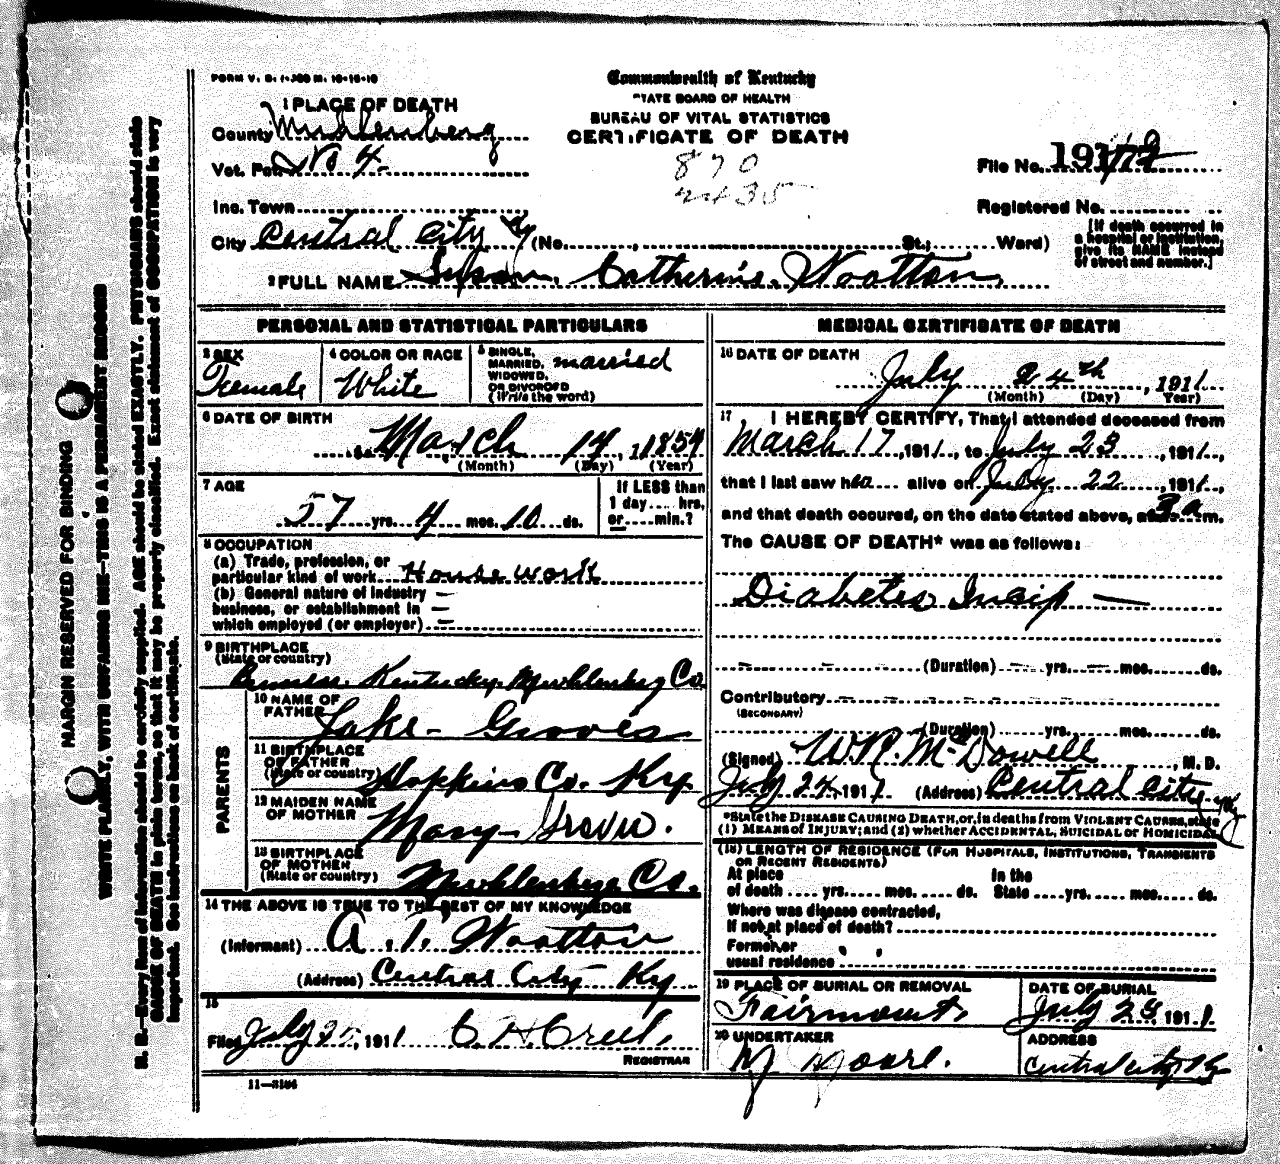 FORM V. S. 1-300 M. 10-15-10
Commonwealth of Kentucky
STATE BOARD OF HEALTH
BUREAU OF VITAL STATISTICS
CERTIFICATE OF DEATH
1 PLACE OF DEATH
County Muhlenberg
Vot. Pct. No 4
Inc. Town
City Central City Ky (No. , St.; Ward)
870
2435
File No. 191
Registered No.
[If death occurred in a hospital or institution, give its NAME instead of street and number.]
2 FULL NAME Susan Catherine Wootton
PERSONAL AND STATISTICAL PARTICULARS
3 SEX Female
4 COLOR OR RACE White
5 SINGLE, MARRIED, WIDOWED, OR DIVORCED (Write the word) married
6 DATE OF BIRTH
March 14, 1854
(Month) (Day) (Year)
7 AGE
57 yrs. 4 mos. 10 ds.
If LESS than 1 day.... hrs. or.... min.?
8 OCCUPATION
(a) Trade, profession, or particular kind of work House work
(b) General nature of industry business, or establishment in which employed (or employer) —
9 BIRTHPLACE
(State or country)
Kentucky Muhlenberg Co.
PARENTS
10 NAME OF FATHER Jake Groves
11 BIRTHPLACE OF FATHER (State or country) Hopkins Co. Ky
12 MAIDEN NAME OF MOTHER Mary
13 BIRTHPLACE OF MOTHER (State or country) Muhlenberg Co.
14 THE ABOVE IS TRUE TO THE BEST OF MY KNOWLEDGE
(Informant) A. T. Wootton
(Address) Central City Ky
15
Filed July 25, 1911 C. H. Creel,
REGISTRAR
11—3184
MEDICAL CERTIFICATE OF DEATH
16 DATE OF DEATH
July 24th, 1911
(Month) (Day) Year)
17 I HEREBY CERTIFY, That I attended deceased from
March 17, 1911, to July 23, 1911,
that I last saw her alive on July 22, 1911,
and that death occured, on the date stated above, at 3 a m.
The CAUSE OF DEATH* was as follows:
Diabetes Insip —
(Duration) yrs. mos. ds.
Contributory
(SECONDARY)
(Duration) yrs. mos. ds.
(Signed) W.R. McDowell, M. D.
July 24, 1911 (Address) Central City Ky
*State the DISEASE CAUSING DEATH, or, in deaths from VIOLENT CAUSES, state
(1) MEANS of INJURY; and (2) whether ACCIDENTAL, SUICIDAL or HOMICIDAL
(18) LENGTH OF RESIDENCE (FOR HOSPITALS, INSTITUTIONS, TRANSIENTS
OR RECENT RESIDENTS)
At place of death .... yrs. .... mos. .... ds. In the State .... yrs. .... mos. .... ds.
Where was disease contracted,
If not at place of death?
Former or
usual residence
19 PLACE OF BURIAL OR REMOVAL
Fairmount,
DATE OF BURIAL
July 25, 1911.
20 UNDERTAKER
Moore.
ADDRESS
Central City Ky
MARGIN RESERVED FOR BINDING
WRITE PLAINLY, WITH UNFADING INK—THIS IS A PERMANENT RECORD
N. B.—Every item of information should be carefully supplied. AGE should be stated EXACTLY. PHYSICIANS should state
CAUSE OF DEATH in plain terms, so that it may be properly classified. Exact statement of OCCUPATION is very
important. See instructions on back of certificate.